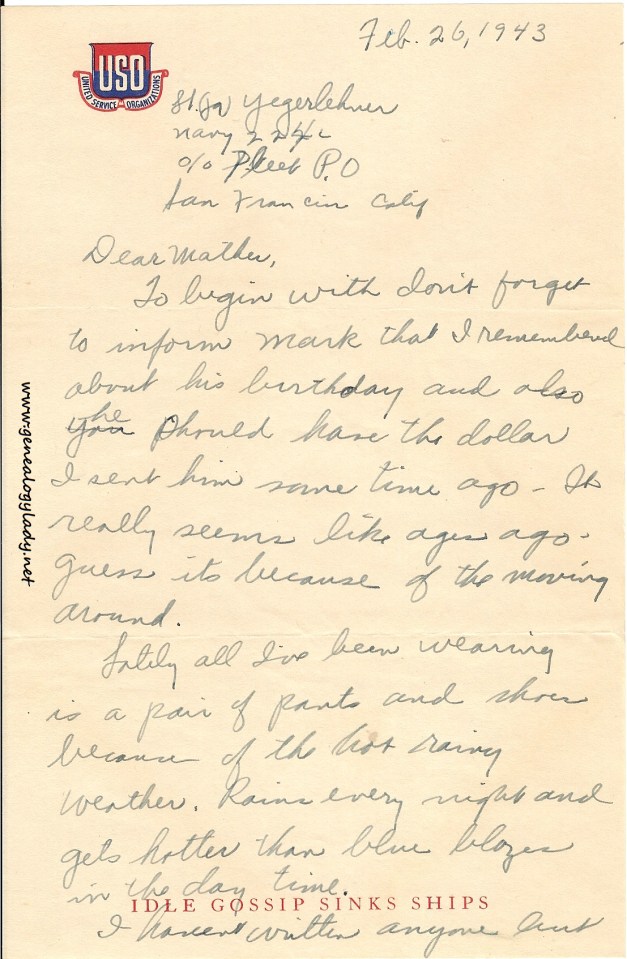 Feb. 26, 1943
USO
UNITED SERVICE ORGANIZATIONS
Yegerlehner
Navy
c/o Fleet P.O
San Francisco Calif
Dear Mother,
To begin with don't forget
to inform Mark that I remembered
about his birthday and also
he
you should have the dollar
I sent him some time ago - It
really seems like ages ago -
Guess its because of the moving
around.
Lately all I've been wearing
is a pair of pants and shoes
because of the hot rainy
weather. Rains every night and
gets hotter than blue blazes
in the day time.
IDLE GOSSIP SINKS SHIPS
I haven't written anyone but
www.genealogylady.net